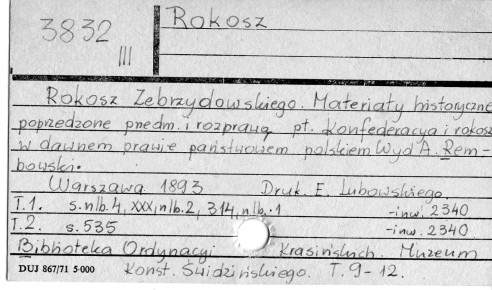 3832
III
Rokosz
Rokosz Zebrzydowskiego. Materiały historyczne
poprzedzone przedm. i rozprawą pt. Konfederacya i rokosz
w dawnem prawie państwowem polskiem Wyd A. Rem-
bowski.
Warszawa 1893 Druk. E. Lubowskiego
T.1. s.nlb.4, XXX, nlb.2, 314, nlb.1 -inw. 2340
T.2. s.535 -inw. 2340
Biblioteka Ordynacyi Krasińskich. Muzeum
DUJ 867/71 5·000 Konst. Świdzińskiego. T. 9-12.